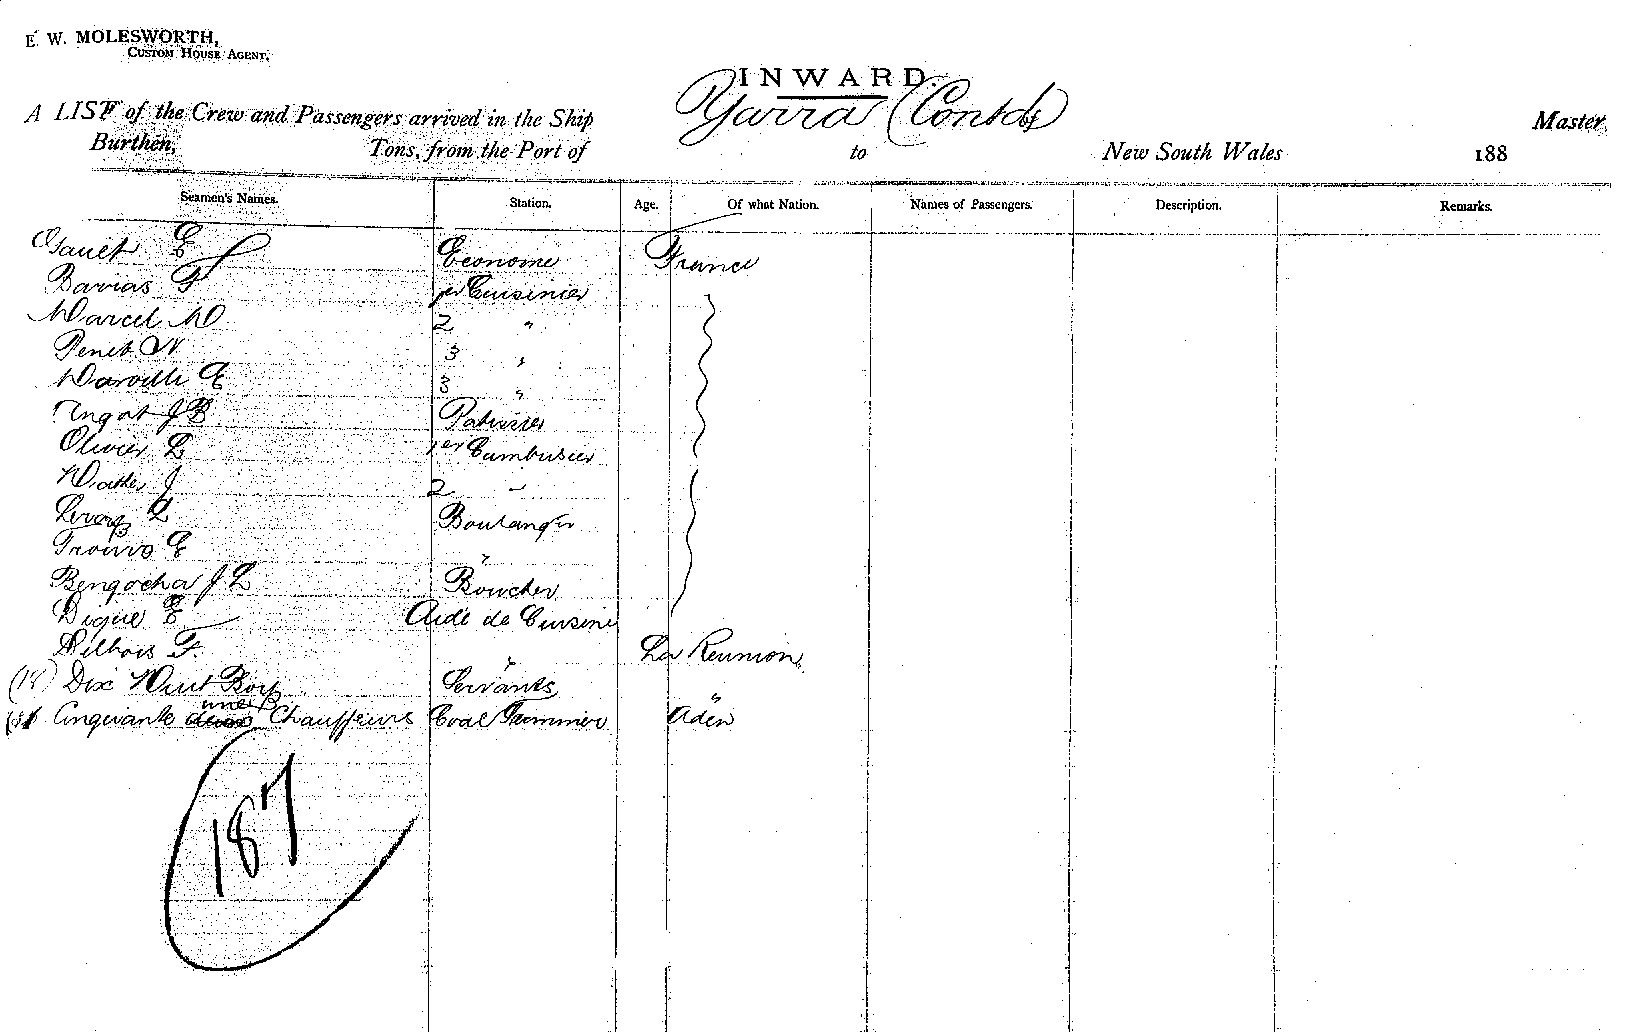 E. W. MOLESWORTH,
CUSTOM HOUSE AGENT.
INWARD.
A LIST of the Crew and Passengers arrived in the Ship Yarra (Contd) Master,
Burthen, Tons, from the Port of to New South Wales 188
Seamen's Names. Station. Age. Of what Nation. Names of Passengers. Description. Remarks.
E Econome France
Barias F 1er Cuisinier
Marcel M 2 "
Penet N 3 "
E 3 "
J B Patissier
Olivier L 1er Cambusier
J 2 "
L Boulanger
E "
Bengochea J L Boucher
Digue E Aide de Cuisine
F. " La Reunion
(18) Dix Huit Boys Servants "
Cinquante une Chauffeurs Coal Trimmer Aden
187